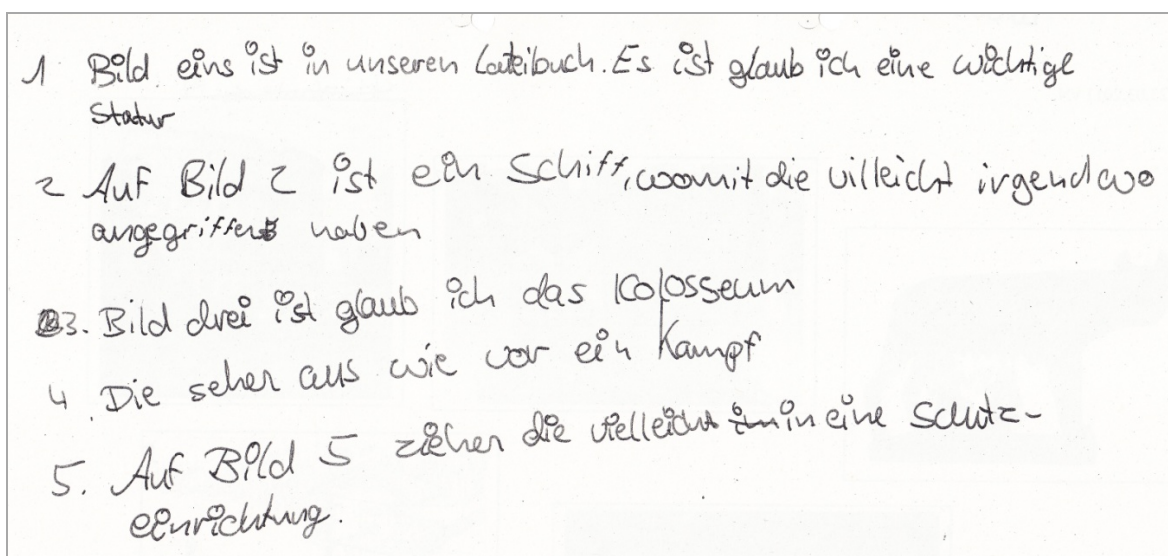 1 Bild eins ist in unseren Lateibuch. Es ist glaub ich eine wichtige
Statur
2 Auf Bild 2 ist ein Schiff, womit die villeicht irgendwo
angegriffen haben
3. Bild drei ist glaub ich das Kolosseum
4. Die sehen aus wie vor ein Kampf
5. Auf Bild 5 ziehen die vielleicht in eine Schutz-
einrichtung.